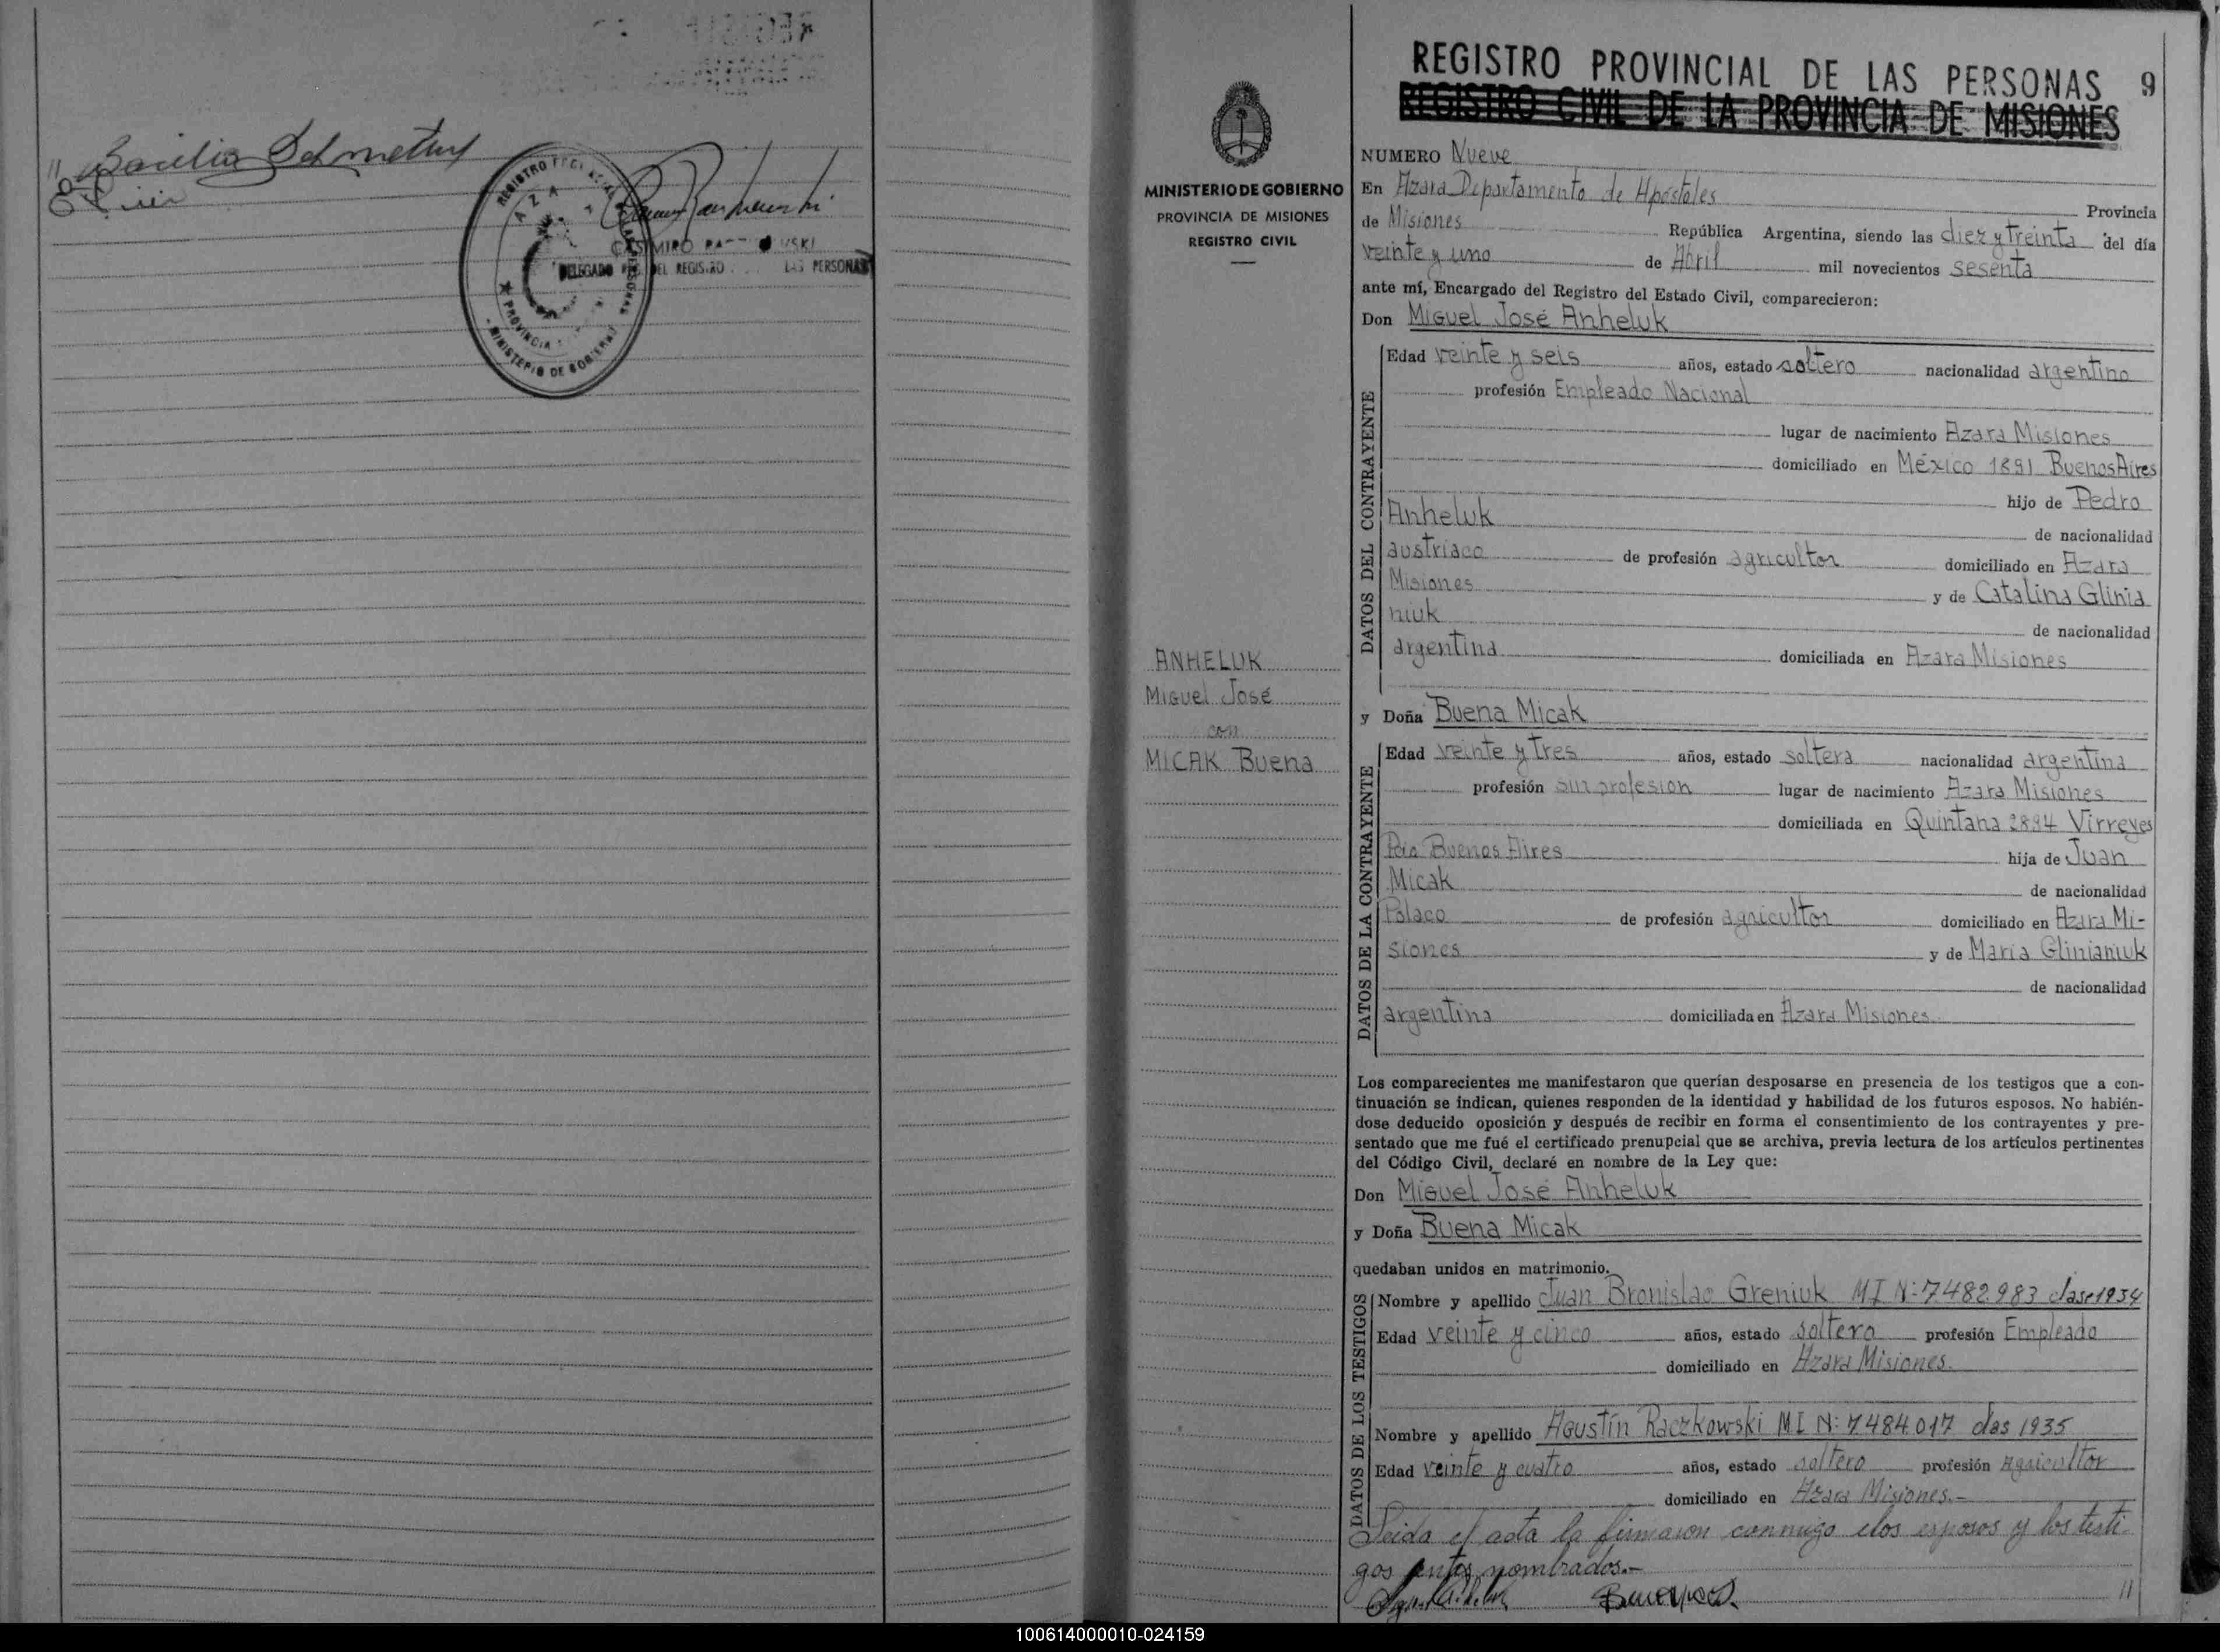 Basilia
REGISTRO
AZARA
PROVINCIA
MINISTERIO DE GOBIERNO
CASIMIRO
DELEGADO DEL REGISTRO LAS PERSONAS
MINISTERIO DE GOBIERNO
PROVINCIA DE MISIONES
REGISTRO CIVIL
ANHELUK
Miguel José
con
MICAK Buena
REGISTRO PROVINCIAL DE LAS PERSONAS 9
REGISTRO CIVIL DE LA PROVINCIA DE MISIONES
NUMERO Nueve
En Azara Departamento de Apóstoles Provincia
de Misiones República Argentina, siendo las diez y treinta del día
veinte y uno de Abril mil novecientos sesenta
ante mí, Encargado del Registro del Estado Civil, comparecieron:
Don Miguel José Anheluk
DATOS DEL CONTRAYENTE
Edad veinte y seis años, estado soltero nacionalidad argentino
profesión Empleado Nacional
lugar de nacimiento Azara Misiones
domiciliado en México 1891 Buenos Aires
hijo de Pedro
Anheluk de nacionalidad
austriaco de profesión agricultor domiciliado en Azara
Misiones y de Catalina Glinia
niuk de nacionalidad
argentina domiciliada en Azara Misiones
y Doña Buena Micak
DATOS DE LA CONTRAYENTE
Edad veinte y tres años, estado soltera nacionalidad argentina
profesión sin profesion lugar de nacimiento Azara Misiones
domiciliada en Quintana 2894 Virreyes
Pcia Buenos Aires hija de Juan
Micak de nacionalidad
Polaco de profesión agricultor domiciliado en Azara Mi-
siones y de María Glinianiuk
de nacionalidad
argentina domiciliada en Azara Misiones.
Los comparecientes me manifestaron que querían desposarse en presencia de los testigos que a con-
tinuación se indican, quienes responden de la identidad y habilidad de los futuros esposos. No habién-
dose deducido oposición y después de recibir en forma el consentimiento de los contrayentes y pre-
sentado que me fué el certificado prenupcial que se archiva, previa lectura de los artículos pertinentes
del Código Civil, declaré en nombre de la Ley que:
Don Miguel José Anheluk
y Doña Buena Micak
quedaban unidos en matrimonio.
DATOS DE LOS TESTIGOS
Nombre y apellido Juan Bronislao Greniuk MI N: 7482983 clase 1934
Edad veinte y cinco años, estado soltero profesión Empleado
domiciliado en Azara Misiones.
Nombre y apellido Agustín Raczkowski MI N: 7.484.017 clas 1935
Edad veinte y cuatro años, estado soltero profesión Agricultor
domiciliado en Azara Misiones.-
Leida el acta la firmaron conmigo los esposos y los testi-
gos antes nombrados.-
100614000010-024159